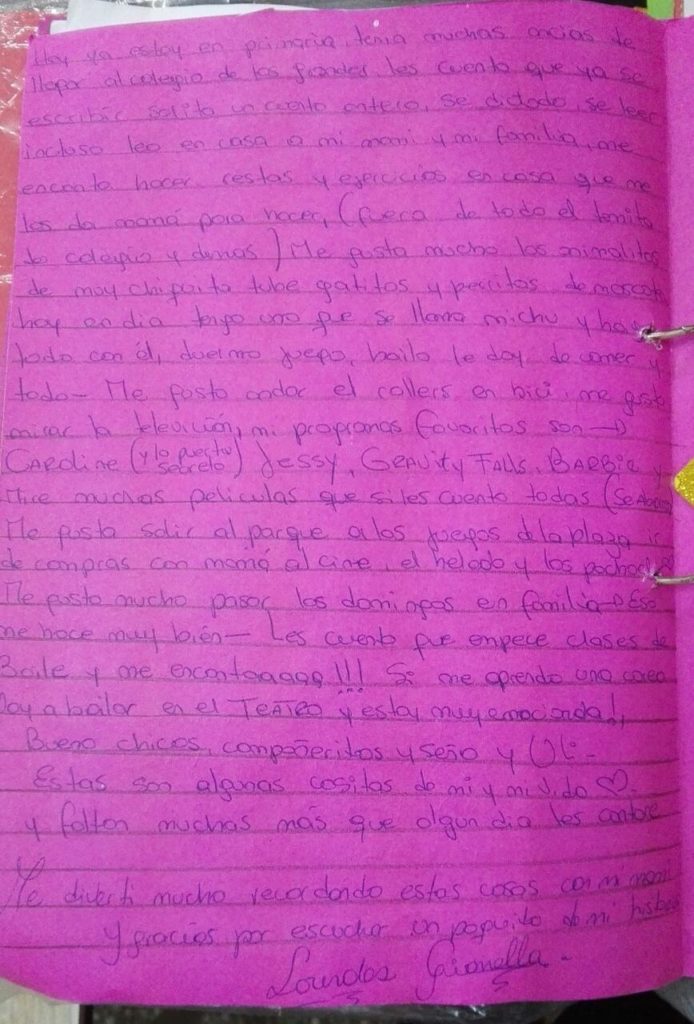 Hoy ya estoy en primaria, tenia muchas ancias de
llegar al colegio de los grandes, les cuento que ya se
escribir solita un cuento entero, se dictado, se leer
incluso leo en casa a mi mami y mi familia, me
encanta hacer restas y ejercicios en casa que me
los da mamá para hacer, (fuera de todo el
colegio y demas) Me gusta mucho los animalitos
de muy chiquita tube gatitos y perritos de mascota
hoy en dia tengo uno que se llama michu y hago
todo con él, duermo juego, bailo le doy de comer y
todo - Me gusta andar el rollers en bici, me gusta
mirar la televición, mi programas favoritos son →
CAROline (y la puerta secreta) Jessy, GRAVity FAlls, BARBIE y
Mire muchas peliculas que si les cuento todas (se
Me gusta salir al parque a los juegos de la plaza ir
de compras con mamá al cine, el helado y los
Me gusta mucho pasar los domingos en familia → Eso
me hace muy bién - Les cuento que empece clases de
Baile y me encantaaaaa!!! Si me aprendo una coreo
Voy a bailar en el TEATRO y estoy muy emocionada!,
Bueno chicos, compañeritos y seño y
Estas son algunas cositas de mi y mi vida ♡.
y faltan muchas más que algun dia les contare
Me diverti mucho recordando estas cosas con mi mami
y gracias por escuchar un poquito de mi historia
Lourdes Gianella.-